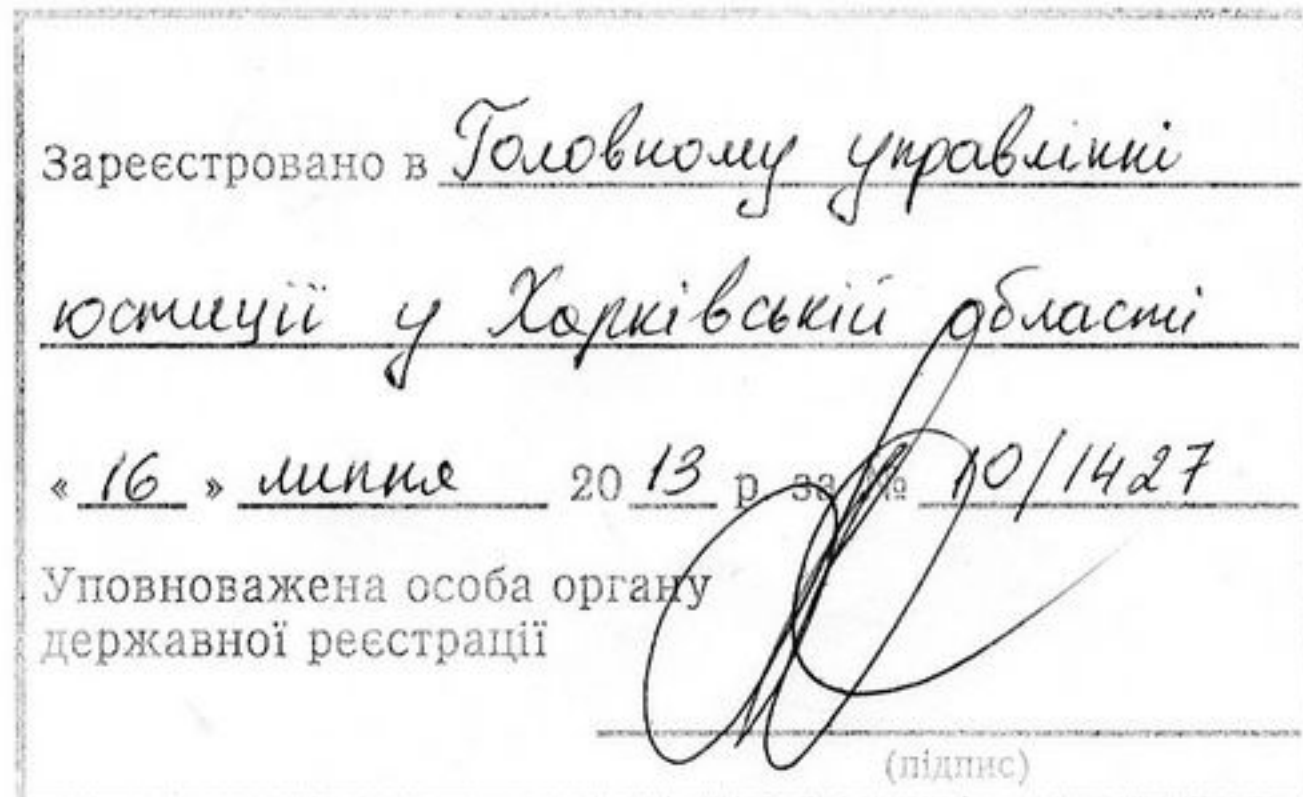 Зареєстровано в Головному управлінні
юстиції у Харківській області
« 16 » липня 20 13 р. за № 10/1427
Уповноважена особа органу
державної реєстрації
(підпис)